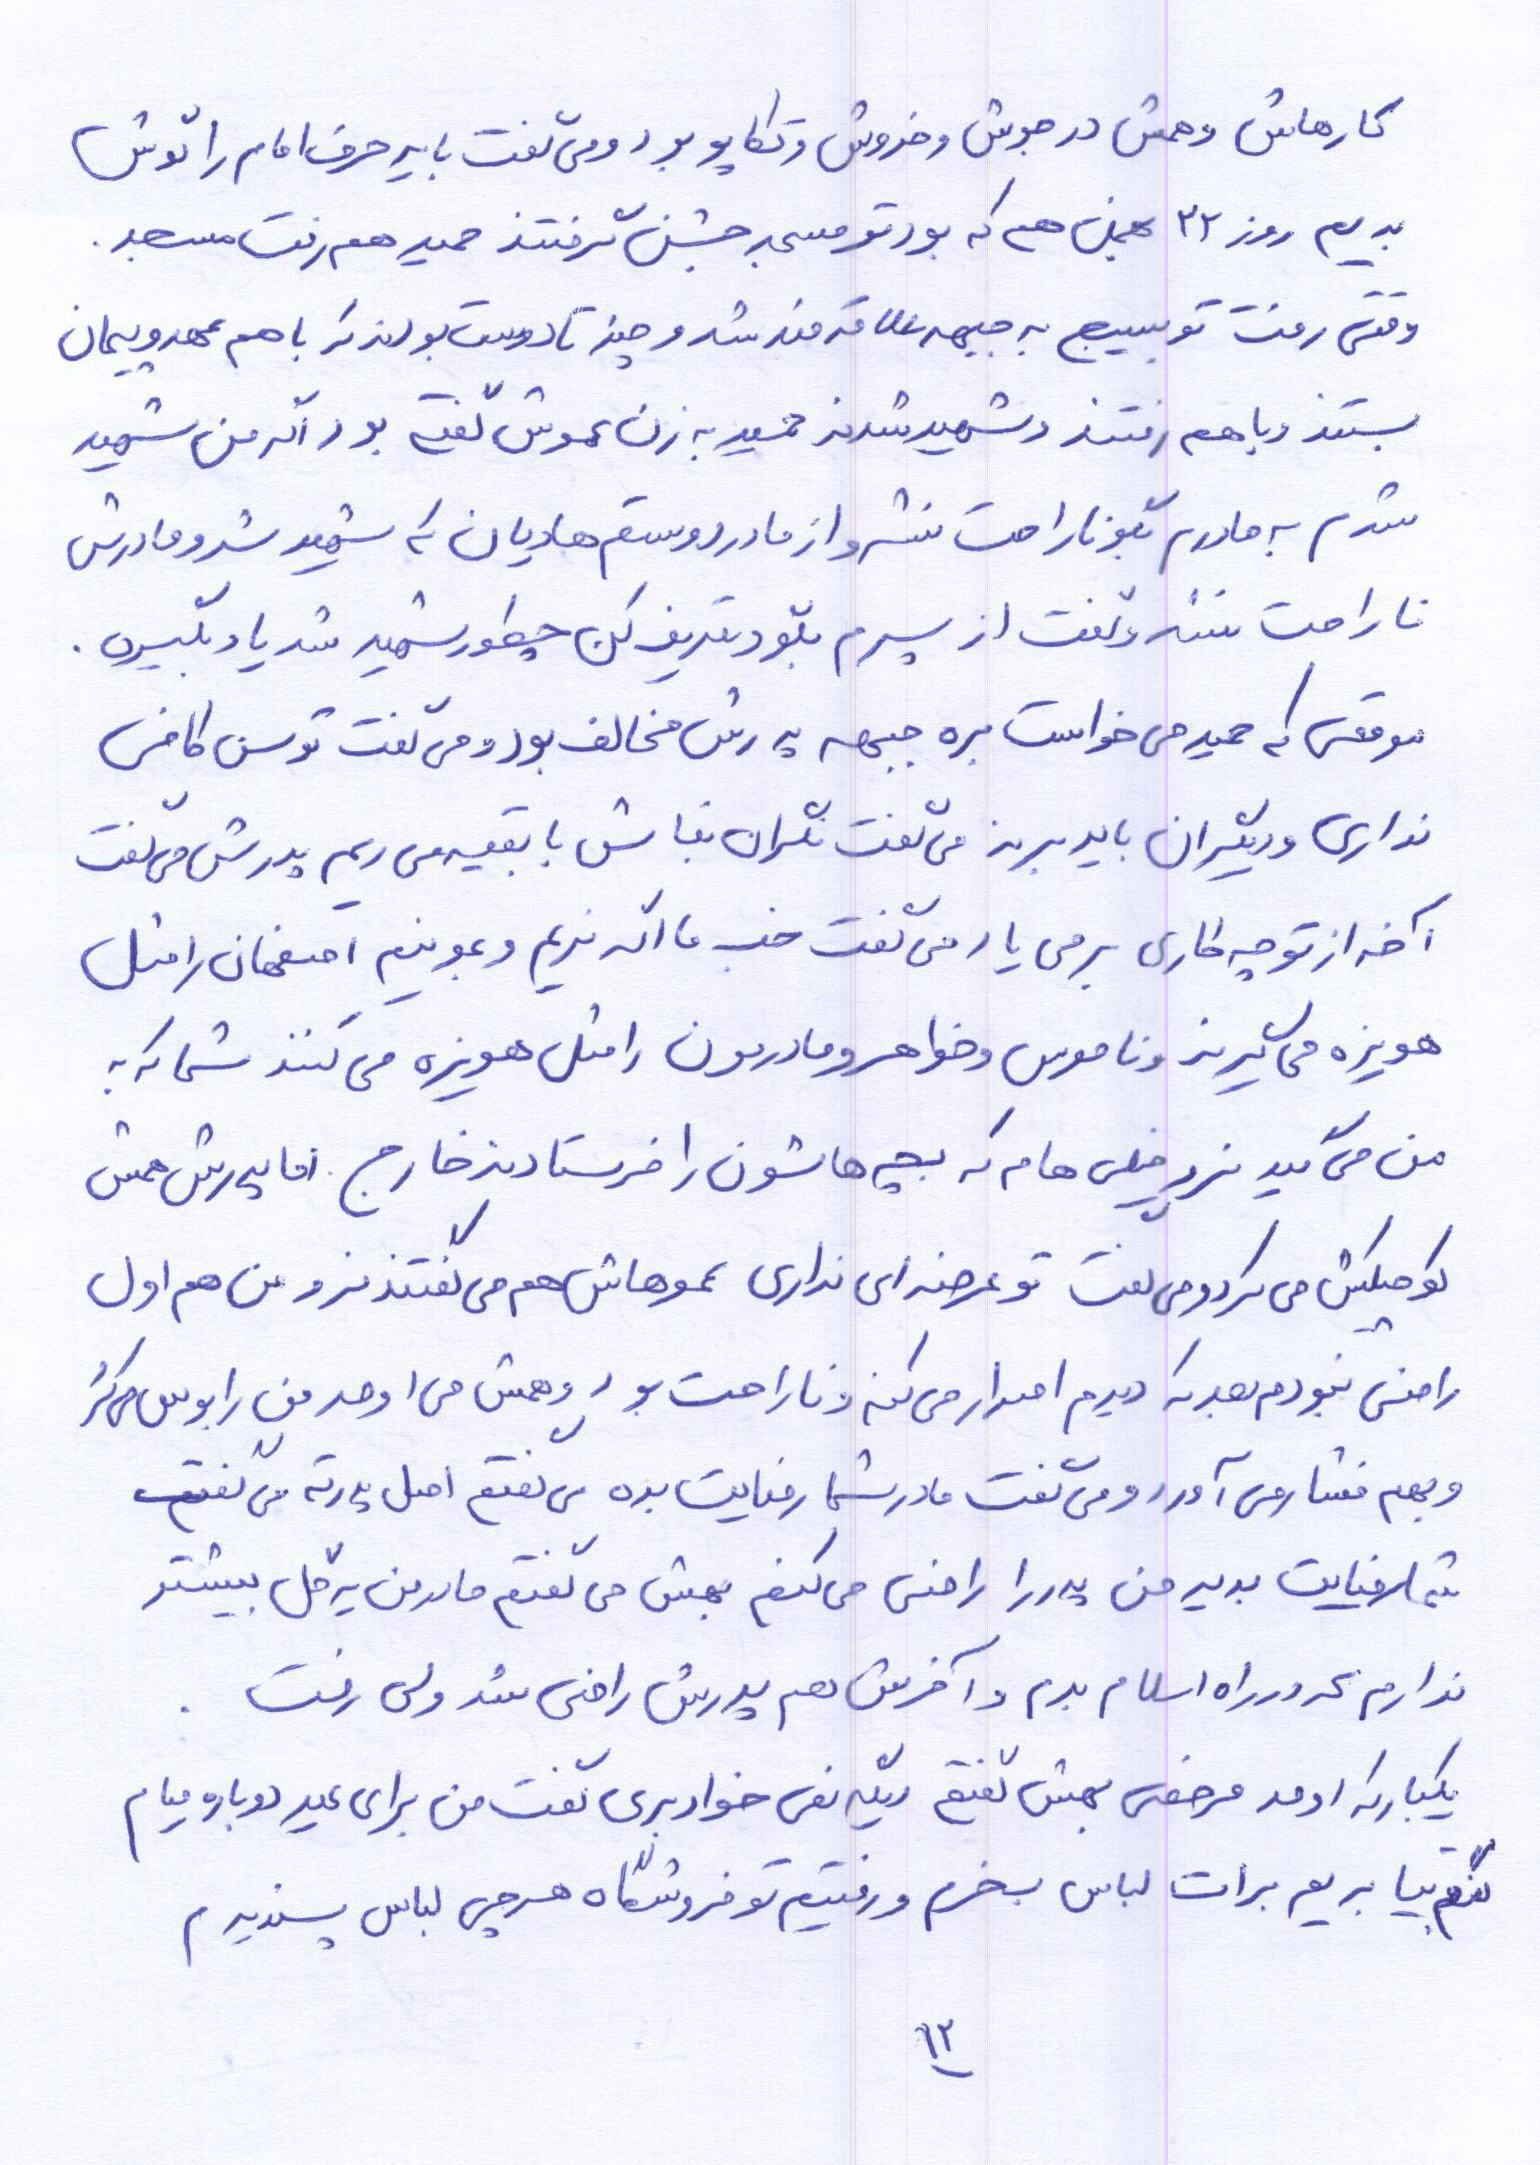 کارهاش و همش در جوش و خروش و تکاپو بود و می گفت باید حرف امام را گوش
بدیم روز ۲۲ بهمن هم که بود تو مسجد جشن گرفتند حمید هم رفت مسجد .
وقتی رفت تو بسیج به جبهه علاقه مند شد و چند تا دوست بودند که با هم عهد و پیمان
بستند و با هم رفتند و شهید شدند حمید به زن عموش گفته بود اگه من شهید
شدم به مادرم بگو ناراحت نشو از مادر دوستم هادیان که شهید شد و مادرش
ناراحت نشد و گفت از پسرم بگو و تعریف کن چطور شهید شد یاد بگیرد .
موقعی که حمید می خواست بره جبهه پدرش مخالف بود و می گفت تو سن کافی
نداری و دیگران باید برند می گفت نگران نباش با بقیه می ریم پدرش می گفت
آخه از تو چه کاری بر می یاد می گفت خب ما اگه نریم و بمونیم اصفهان را مثل
هویزه می گیرند و ناموس و خواهر و مادرمون را مثل هویزه می کنند شما که به
من می گید نرو خیلی ها م که بچه هاشون را فرستادند خارج . اما پدرش همش
کوچیکش می کرد و می گفت تو عرضه ای نداری عموهاش هم می گفتند نرو من هم اول
راضی نبودم بعد که دیدم اصرار می کنه و ناراحت بود و همش می اومد من را بوس می کرد
و بهم فشار می آورد و می گفت مادر شما رضایت بده می گفتم اصل پدرته می گفت
شما رضایت بدید من پدر را راضی می کنم بهش می گفتم مادر من یه گل بیشتر
ندارم که در راه اسلام بدم و آخرش هم پدرش راضی نشد ولی رفت .
یکبار که اومد مرخصی بهش گفتم دیگه نمی خواد بری گفت من برای عید دوباره میام
گفتم بیا بریم برات لباس بخرم و رفتیم تو فروشگاه هرچی لباس پسندیدم
۱۲